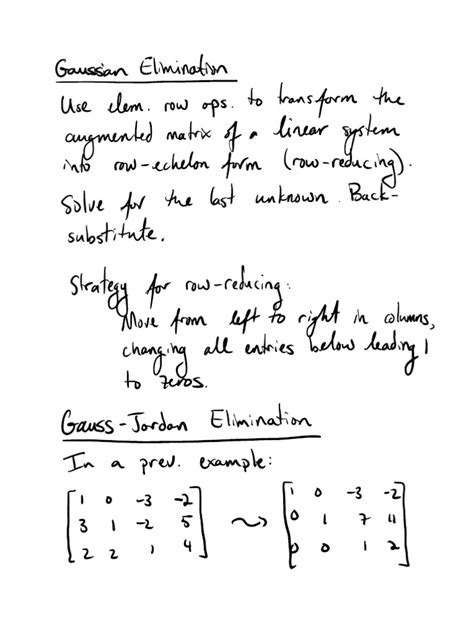 Gaussian Elimination
Use elem. row ops. to transform the
augmented matrix of a linear system
into row-echelon form (row-reducing).
Solve for the last unknown. Back-
substitute.
Strategy for row-reducing:
Move from left to right in columns,
changing all entries below leading 1
to zeros.
Gauss-Jordan Elimination
In a prev. example:
[1 0 -3 -2] [1 0 -3 -2]
[3 1 -2 5] ⤳ [0 1 7 11]
[2 2 1 4] [0 0 1 2]